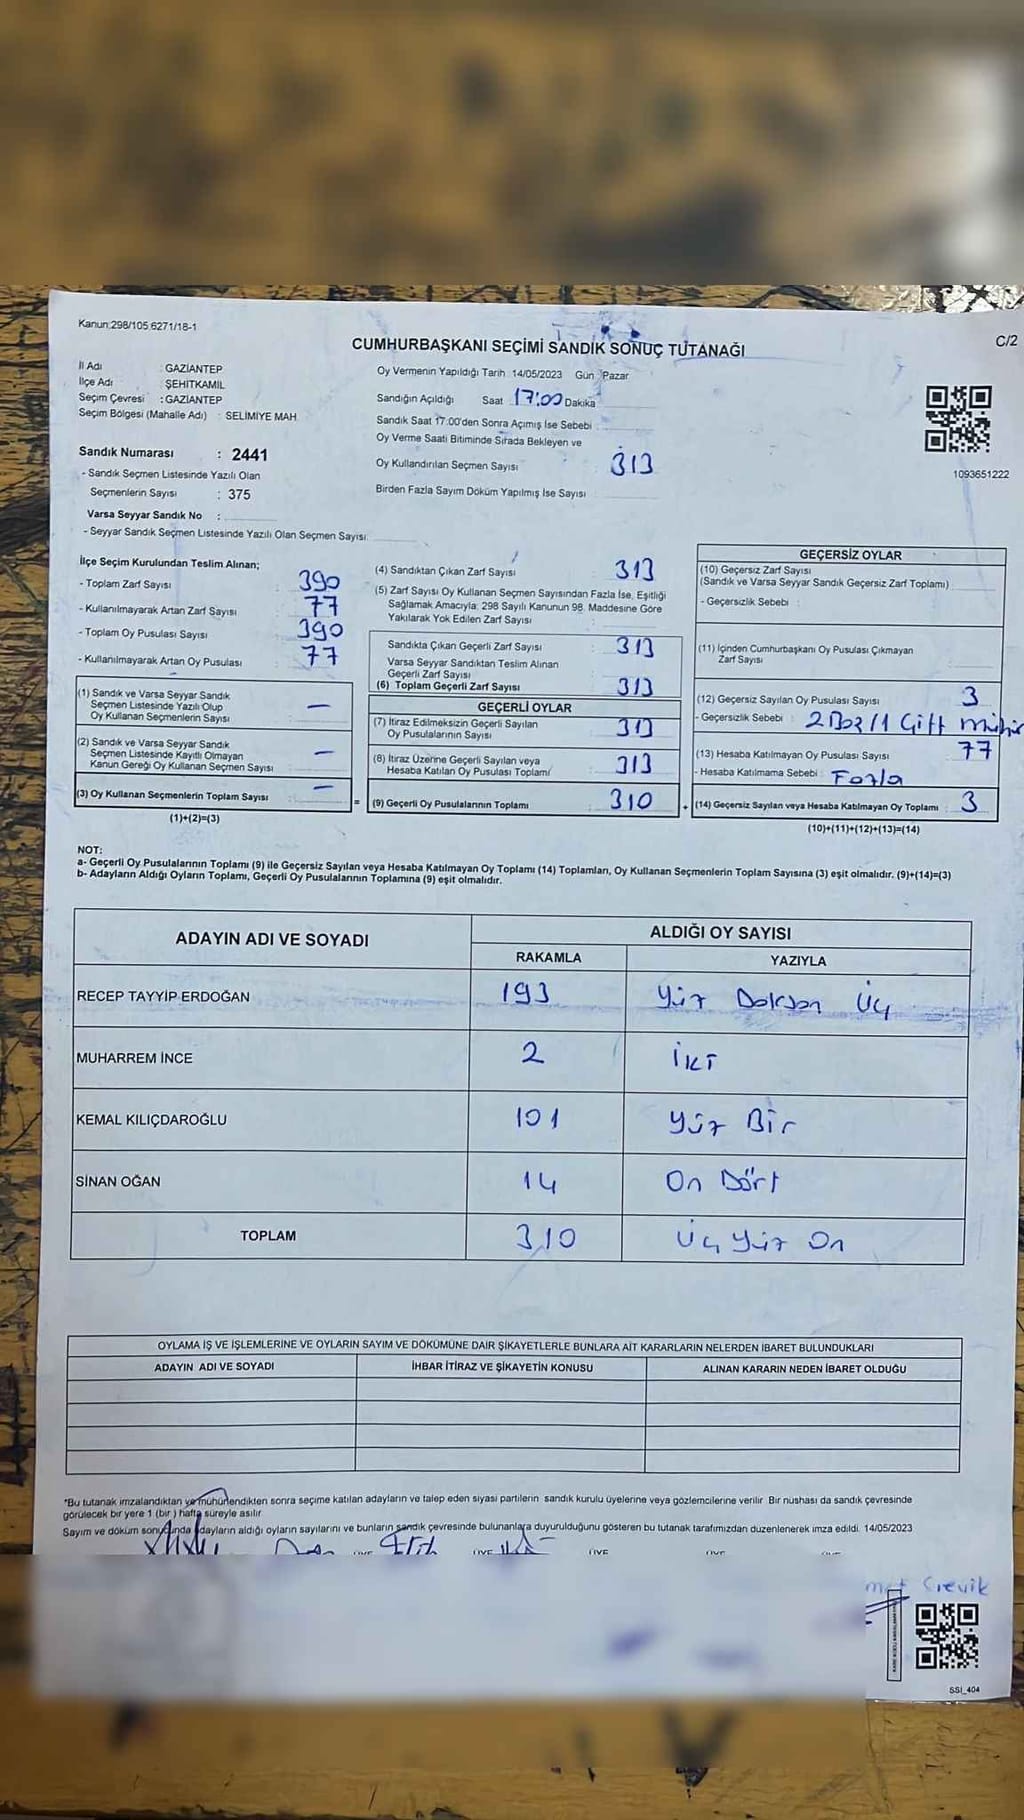 Kanun:298/105 6271/18-1
C/2
CUMHURBAŞKANI SEÇİMİ SANDIK SONUÇ TUTANAĞI
İl Adı : GAZİANTEP
İlçe Adı : ŞEHİTKAMİL
Seçim Çevresi : GAZİANTEP
Seçim Bölgesi (Mahalle Adı) : SELİMİYE MAH.
Sandık Numarası : 2441
- Sandık Seçmen Listesinde Yazılı Olan
Seçmenlerin Sayısı : 375
Varsa Seyyar Sandık No :
- Seyyar Sandık Seçmen Listesinde Yazılı Olan Seçmen Sayısı:
Oy Vermenin Yapıldığı Tarih 14/05/2023 Gün : Pazar
Sandığın Açıldığı Saat 17:00 Dakika
Sandık Saat 17:00'den Sonra Açımış İse Sebebi
Oy Verme Saati Bitiminde Sırada Bekleyen ve
Oy Kullandırılan Seçmen Sayısı 313
Birden Fazla Sayım Döküm Yapılmış İse Sayısı
1093651222
İlçe Seçim Kurulundan Teslim Alınan;
- Toplam Zarf Sayısı 390
- Kullanılmayarak Artan Zarf Sayısı 77
- Toplam Oy Pusulası Sayısı 390
- Kullanılmayarak Artan Oy Pusulası 77
(1) Sandık ve Varsa Seyyar Sandık
Seçmen Listesinde Yazılı Olup
Oy Kullanan Seçmenlerin Sayısı –
(2) Sandık ve Varsa Seyyar Sandık
Seçmen Listesinde Kayıtlı Olmayan
Kanun Gereği Oy Kullanan Seçmen Sayısı –
(3) Oy Kullanan Seçmenlerin Toplam Sayısı –
(1)+(2)=(3)
=
(4) Sandıktan Çıkan Zarf Sayısı 313
(5) Zarf Sayısı Oy Kullanan Seçmen Sayısından Fazla İse, Eşitliği
Sağlamak Amacıyla; 298 Sayılı Kanunun 98. Maddesine Göre
Yakılarak Yok Edilen Zarf Sayısı :
Sandıkta Çıkan Geçerli Zarf Sayısı : 313
Varsa Seyyar Sandıktan Teslim Alınan
Geçerli Zarf Sayısı :
(6) Toplam Geçerli Zarf Sayısı 313
GEÇERLİ OYLAR
(7) İtiraz Edilmeksizin Geçerli Sayılan
Oy Pusulalarının Sayısı 313
(8) İtiraz Üzerine Geçerli Sayılan veya
Hesaba Katılan Oy Pusulası Toplamı 313
(9) Geçerli Oy Pusulalarının Toplamı 310
+
GEÇERSİZ OYLAR
(10) Geçersiz Zarf Sayısı
(Sandık ve Varsa Seyyar Sandık Geçersiz Zarf Toplamı)
- Geçersizlik Sebebi :
(11) İçinden Cumhurbaşkanı Oy Pusulası Çıkmayan
Zarf Sayısı
(12) Geçersiz Sayılan Oy Pusulası Sayısı 3
- Geçersizlik Sebebi : 2 Boz/1 Çift mühür
(13) Hesaba Katılmayan Oy Pusulası Sayısı 77
- Hesaba Katılmama Sebebi : Fazla
(14) Geçersiz Sayılan veya Hesaba Katılmayan Oy Toplamı 3
(10)+(11)+(12)+(13)=(14)
NOT:
a- Geçerli Oy Pusulalarının Toplamı (9) ile Geçersiz Sayılan veya Hesaba Katılmayan Oy Toplamı (14) Toplamları, Oy Kullanan Seçmenlerin Toplam Sayısına (3) eşit olmalıdır. (9)+(14)=(3)
b- Adayların Aldığı Oyların Toplamı, Geçerli Oy Pusulalarının Toplamına (9) eşit olmalıdır.
ADAYIN ADI VE SOYADI
ALDIĞI OY SAYISI
RAKAMLA YAZIYLA
RECEP TAYYİP ERDOĞAN 193 Yüz Doksan Üç
MUHARREM İNCE 2 İKİ
KEMAL KILIÇDAROĞLU 101 Yüz Bir
SİNAN OĞAN 14 On Dört
TOPLAM 310 Üç Yüz On
OYLAMA İŞ VE İŞLEMLERİNE VE OYLARIN SAYIM VE DÖKÜMÜNE DAİR ŞİKAYETLERLE BUNLARA AİT KARARLARIN NELERDEN İBARET BULUNDUKLARI
ADAYIN ADI VE SOYADI İHBAR İTİRAZ VE ŞİKAYETİN KONUSU ALINAN KARARIN NEDEN İBARET OLDUĞU
*Bu tutanak imzalandıktan ve mühürlendikten sonra seçime katılan adayların ve talep eden siyasi partilerin sandık kurulu üyelerine veya gözlemcilerine verilir. Bir nüshası da sandık çevresinde
görülecek bir yere 1 (bir) hafta süreyle asılır.
Sayım ve döküm sonucunda adayların aldığı oyların sayılarını ve bunların sandık çevresinde bulunanlara duyurulduğunu gösteren bu tutanak tarafımızdan düzenlenerek imza edildi. 14/05/2023
SSI_404